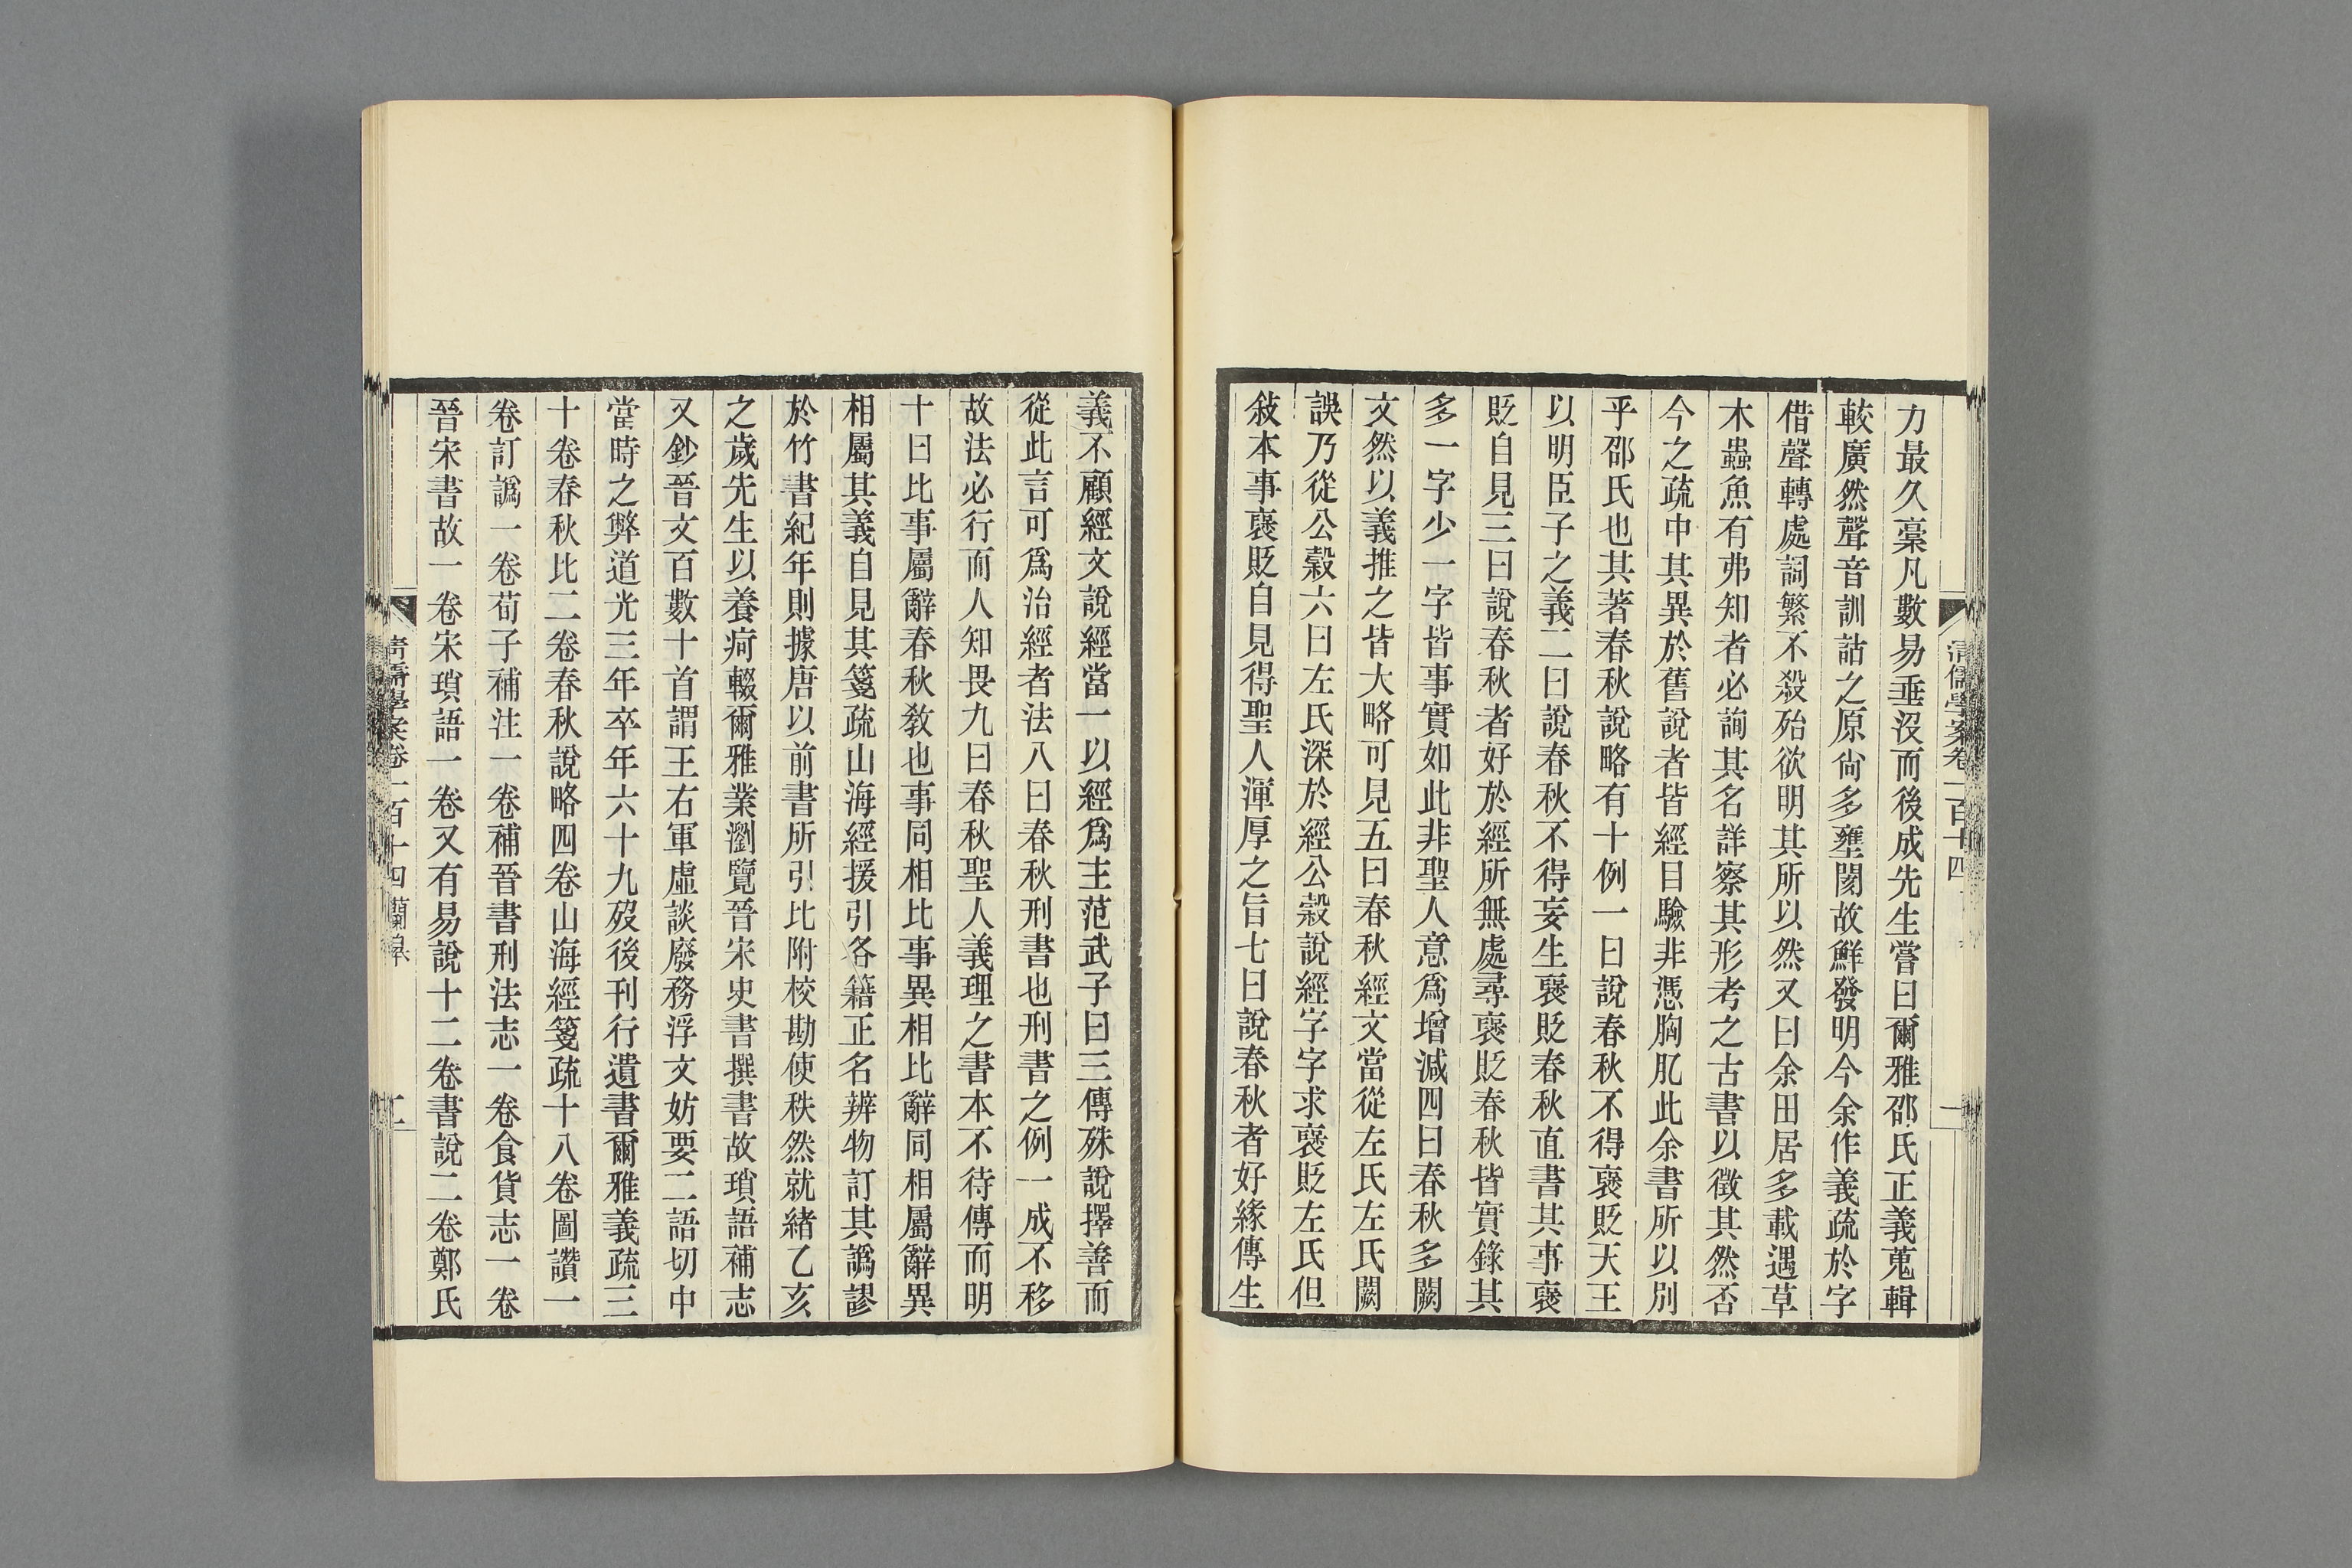 清儒學案卷一百十四
一
力最久稾凡數易垂沒而後成先生嘗曰爾雅邵氏正義蒐輯
較廣然聲音訓詁之原尙多壅閡故鮮發明今余作義疏於字
借聲轉處詞繁不殺殆欲明其所以然又曰余田居多載遇草
木蟲魚有弗知者必詢其名詳察其形考之古書以徵其然否
今之疏中其異於舊說者皆經目驗非憑胸肊此余書所以別
乎邵氏也其著春秋說略有十例一曰說春秋不得褒貶天王
以明臣子之義二曰說春秋不得妄生褒貶春秋直書其事褒
貶自見三曰說春秋者好於經所無處尋褒貶春秋皆實錄其
多一字少一字皆事實如此非聖人意爲增減四曰春秋多闕
文然以義推之皆大略可見五曰春秋經文當從左氏左氏闕
誤乃從公穀六曰左氏深於經公穀說經字字求褒貶左氏但
敍本事褒貶自見得聖人渾厚之旨七曰說春秋者好緣傳生
義不顧經文說經當一以經爲主范武子曰三傳殊說擇善而
從此言可爲治經者法八曰春秋刑書也刑書之例一成不移
故法必行而人知畏九曰春秋聖人義理之書本不待傳而明
十曰比事屬辭春秋敎也事同相比事異相比辭同相屬辭異
相屬其義自見其箋疏山海經援引各籍正名辨物訂其譌謬
於竹書紀年則據唐以前書所引比附校勘使秩然就緒乙亥
之歲先生以養疴輟爾雅業瀏覽晉宋史書撰書故瑣語補志
又鈔晉文百數十首謂王右軍虛談廢務浮文妨要二語切中
當時之弊道光三年卒年六十九歿後刊行遺書爾雅義疏三
十卷春秋比二卷春秋說略四卷山海經箋疏十八卷圖讚一
卷訂譌一卷荀子補注一卷補晉書刑法志一卷食貨志一卷
晉宋書故一卷宋瑣語一卷又有易說十二卷書說二卷鄭氏
清儒學案卷一百十四 蘭皋
二